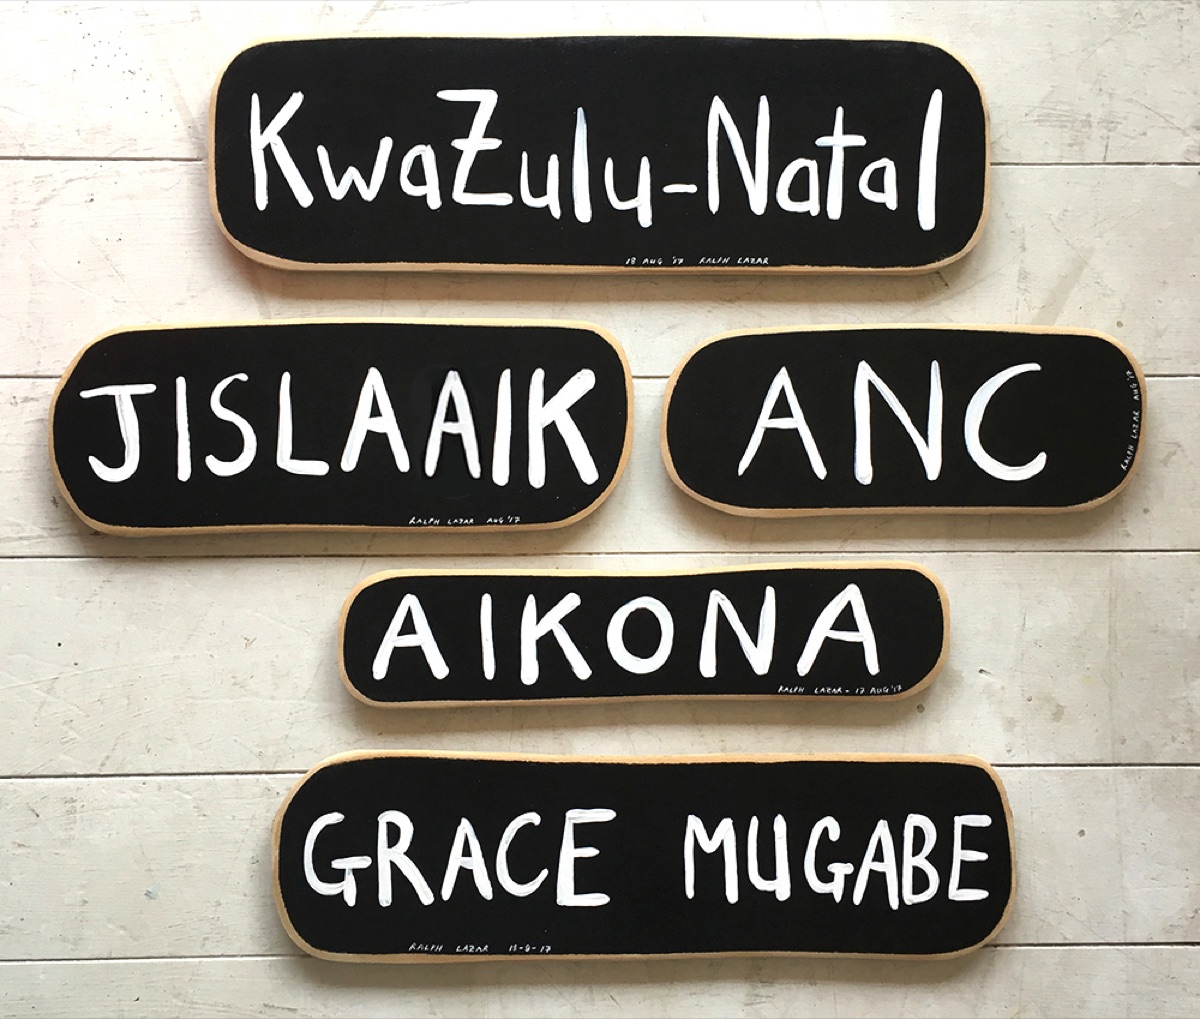 KwaZulu-Natal
18 AUG '17 RALPH LAZAR
JISLAAIK
RALPH LAZAR AUG '17
ANC
RALPH LAZAR AUG '17
AIKONA
RALPH LAZAR - 17 AUG '17
GRACE MUGABE
RALPH LAZAR